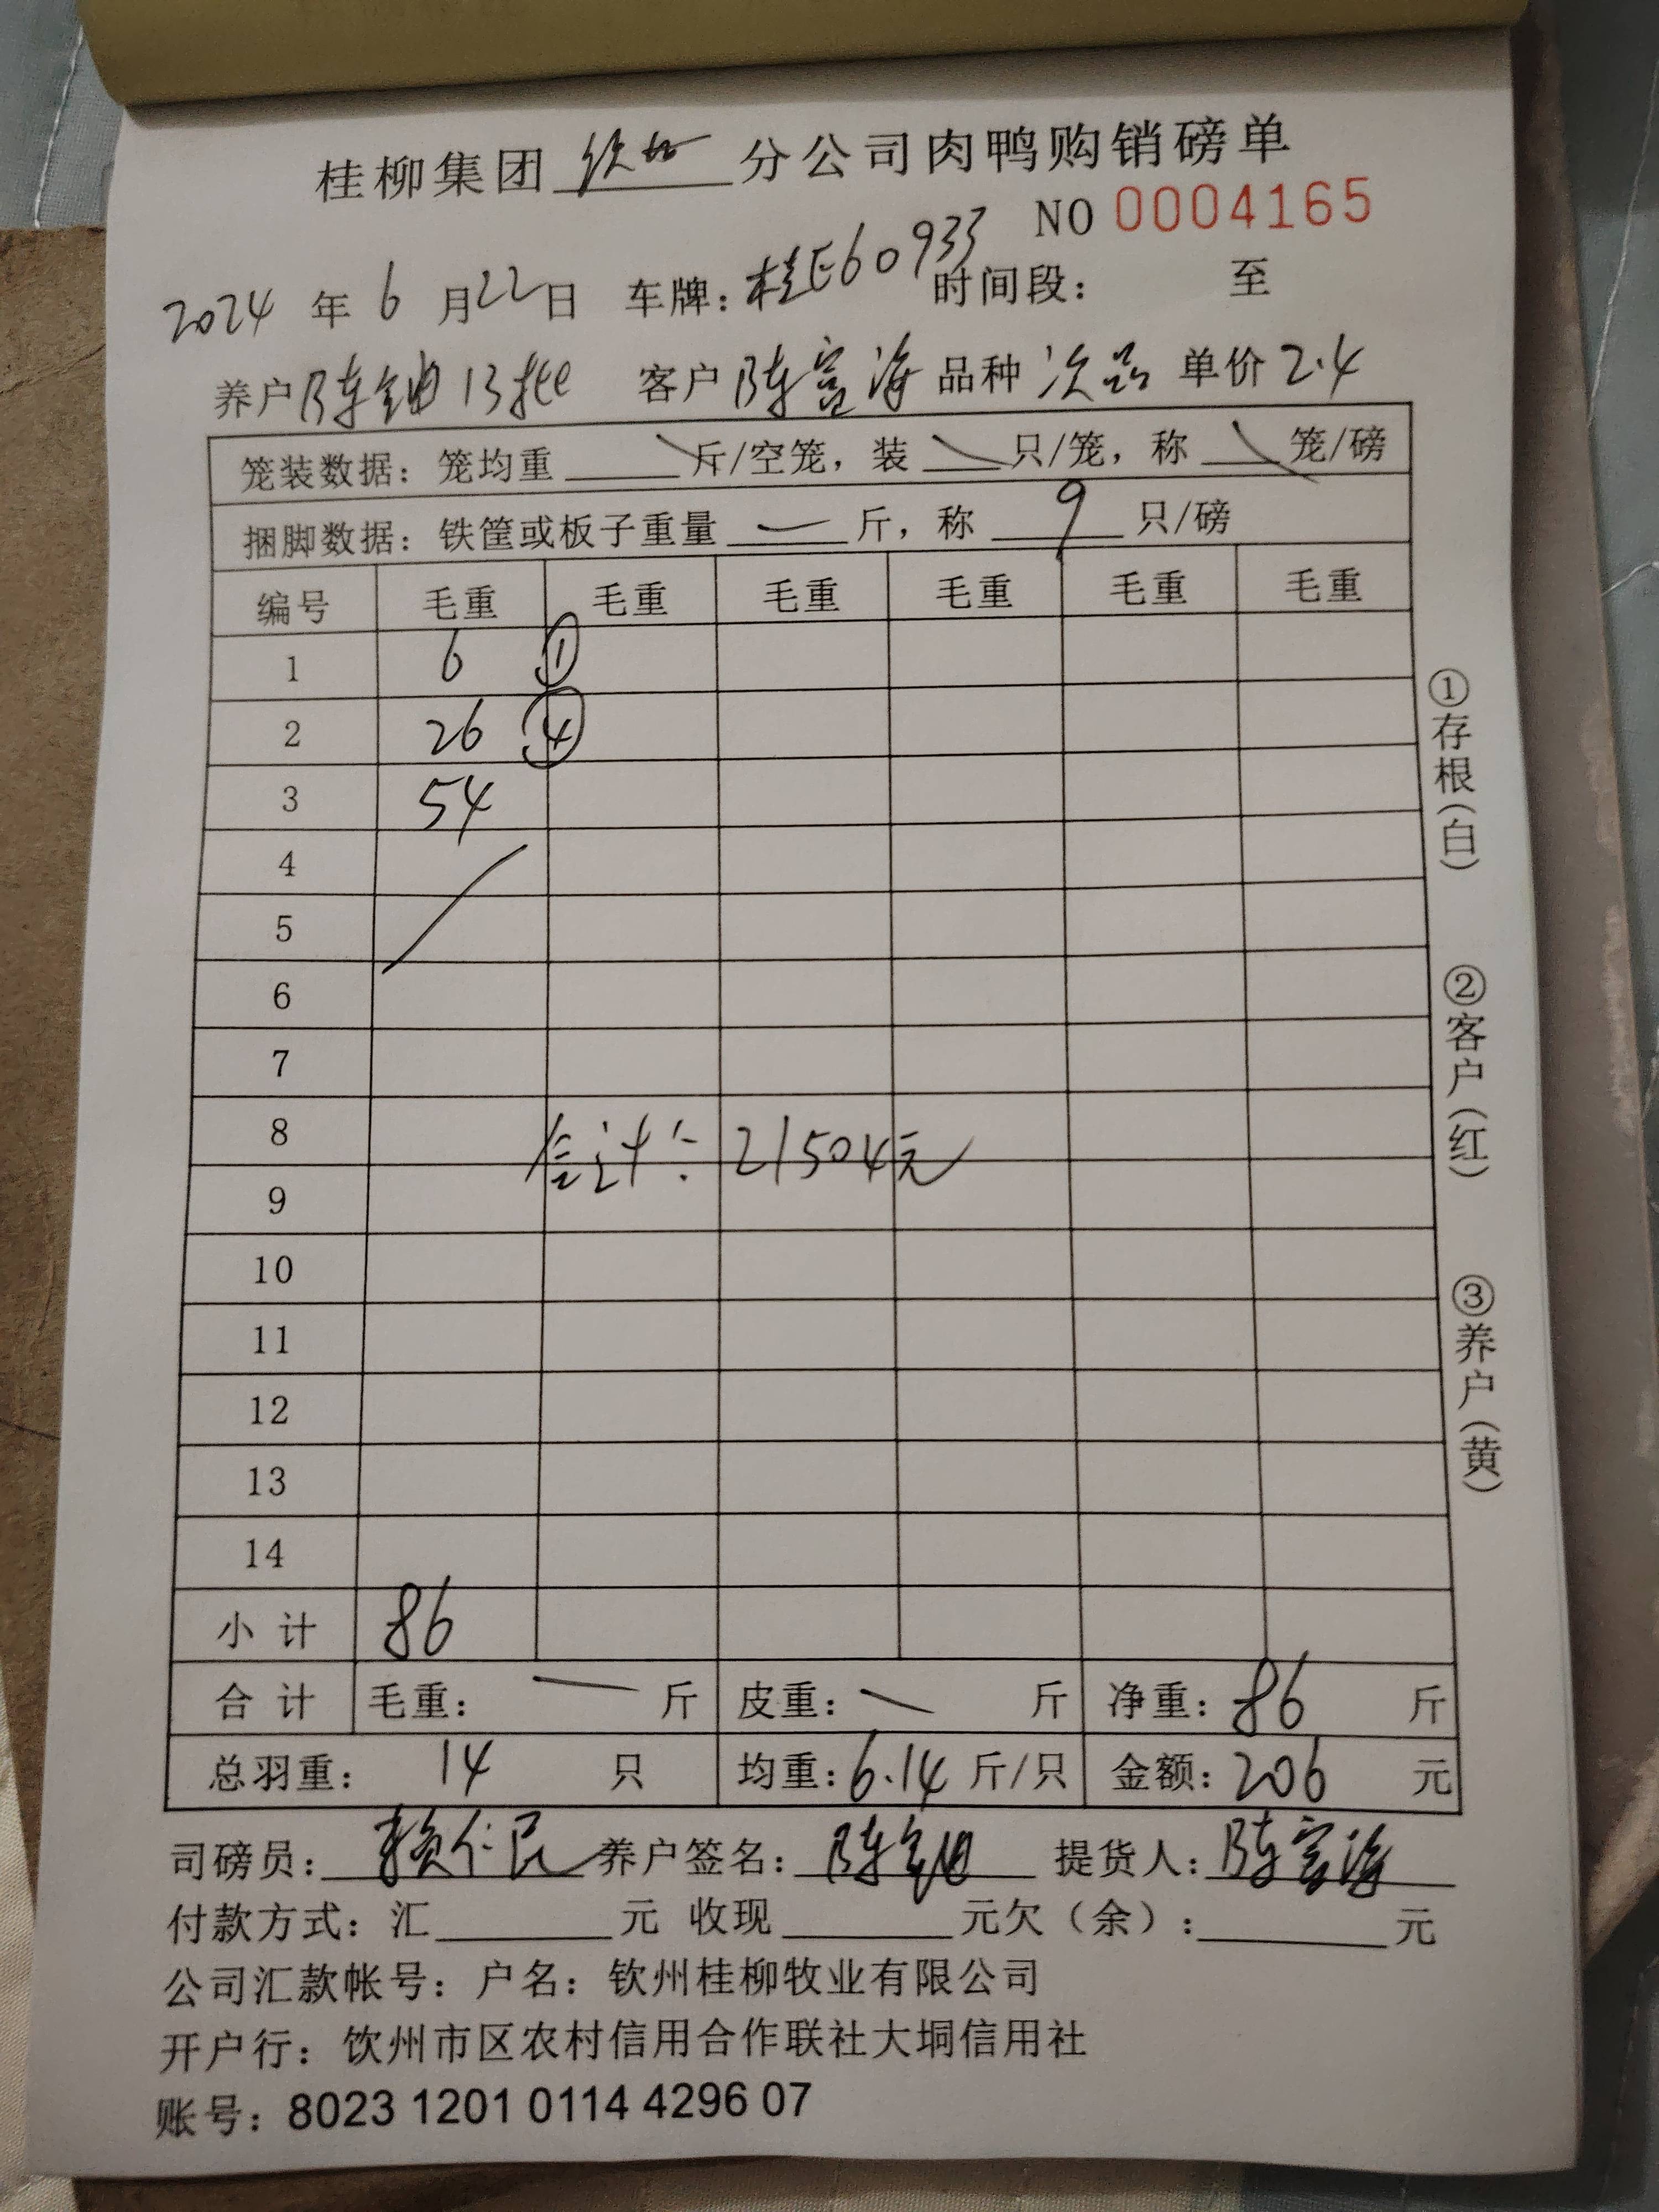 桂柳集团 钦州 分公司肉鸭购销磅单
NO 0004165
2024 年 6 月 22 日 车牌: 桂E60933 时间段: 至
养户 陈 13批 客户 陈富海 品种 次品 单价 2.4
笼装数据: 笼均重 斤/空笼, 装 只/笼, 称 笼/磅
捆脚数据: 铁筐或板子重量 — 斤, 称 9 只/磅
编号 毛重 毛重 毛重 毛重 毛重 毛重
1 6 ①
2 26 ④
3 54
4
5
6
7
8
合计: 21504元
9
10
11
12
13
14
小计 86
合计 毛重: — 斤 皮重: — 斤 净重: 86 斤
总羽重: 14 只 均重: 6.14 斤/只 金额: 206 元
司磅员: 赖仁民 养户签名: 陈 提货人: 陈富海
付款方式: 汇 元 收现 元欠(余): 元
公司汇款帐号: 户名: 钦州桂柳牧业有限公司
开户行: 钦州市区农村信用合作联社大垌信用社
账号: 8023 1201 0114 4296 07
①存根(白)
②客户(红)
③养户(黄)